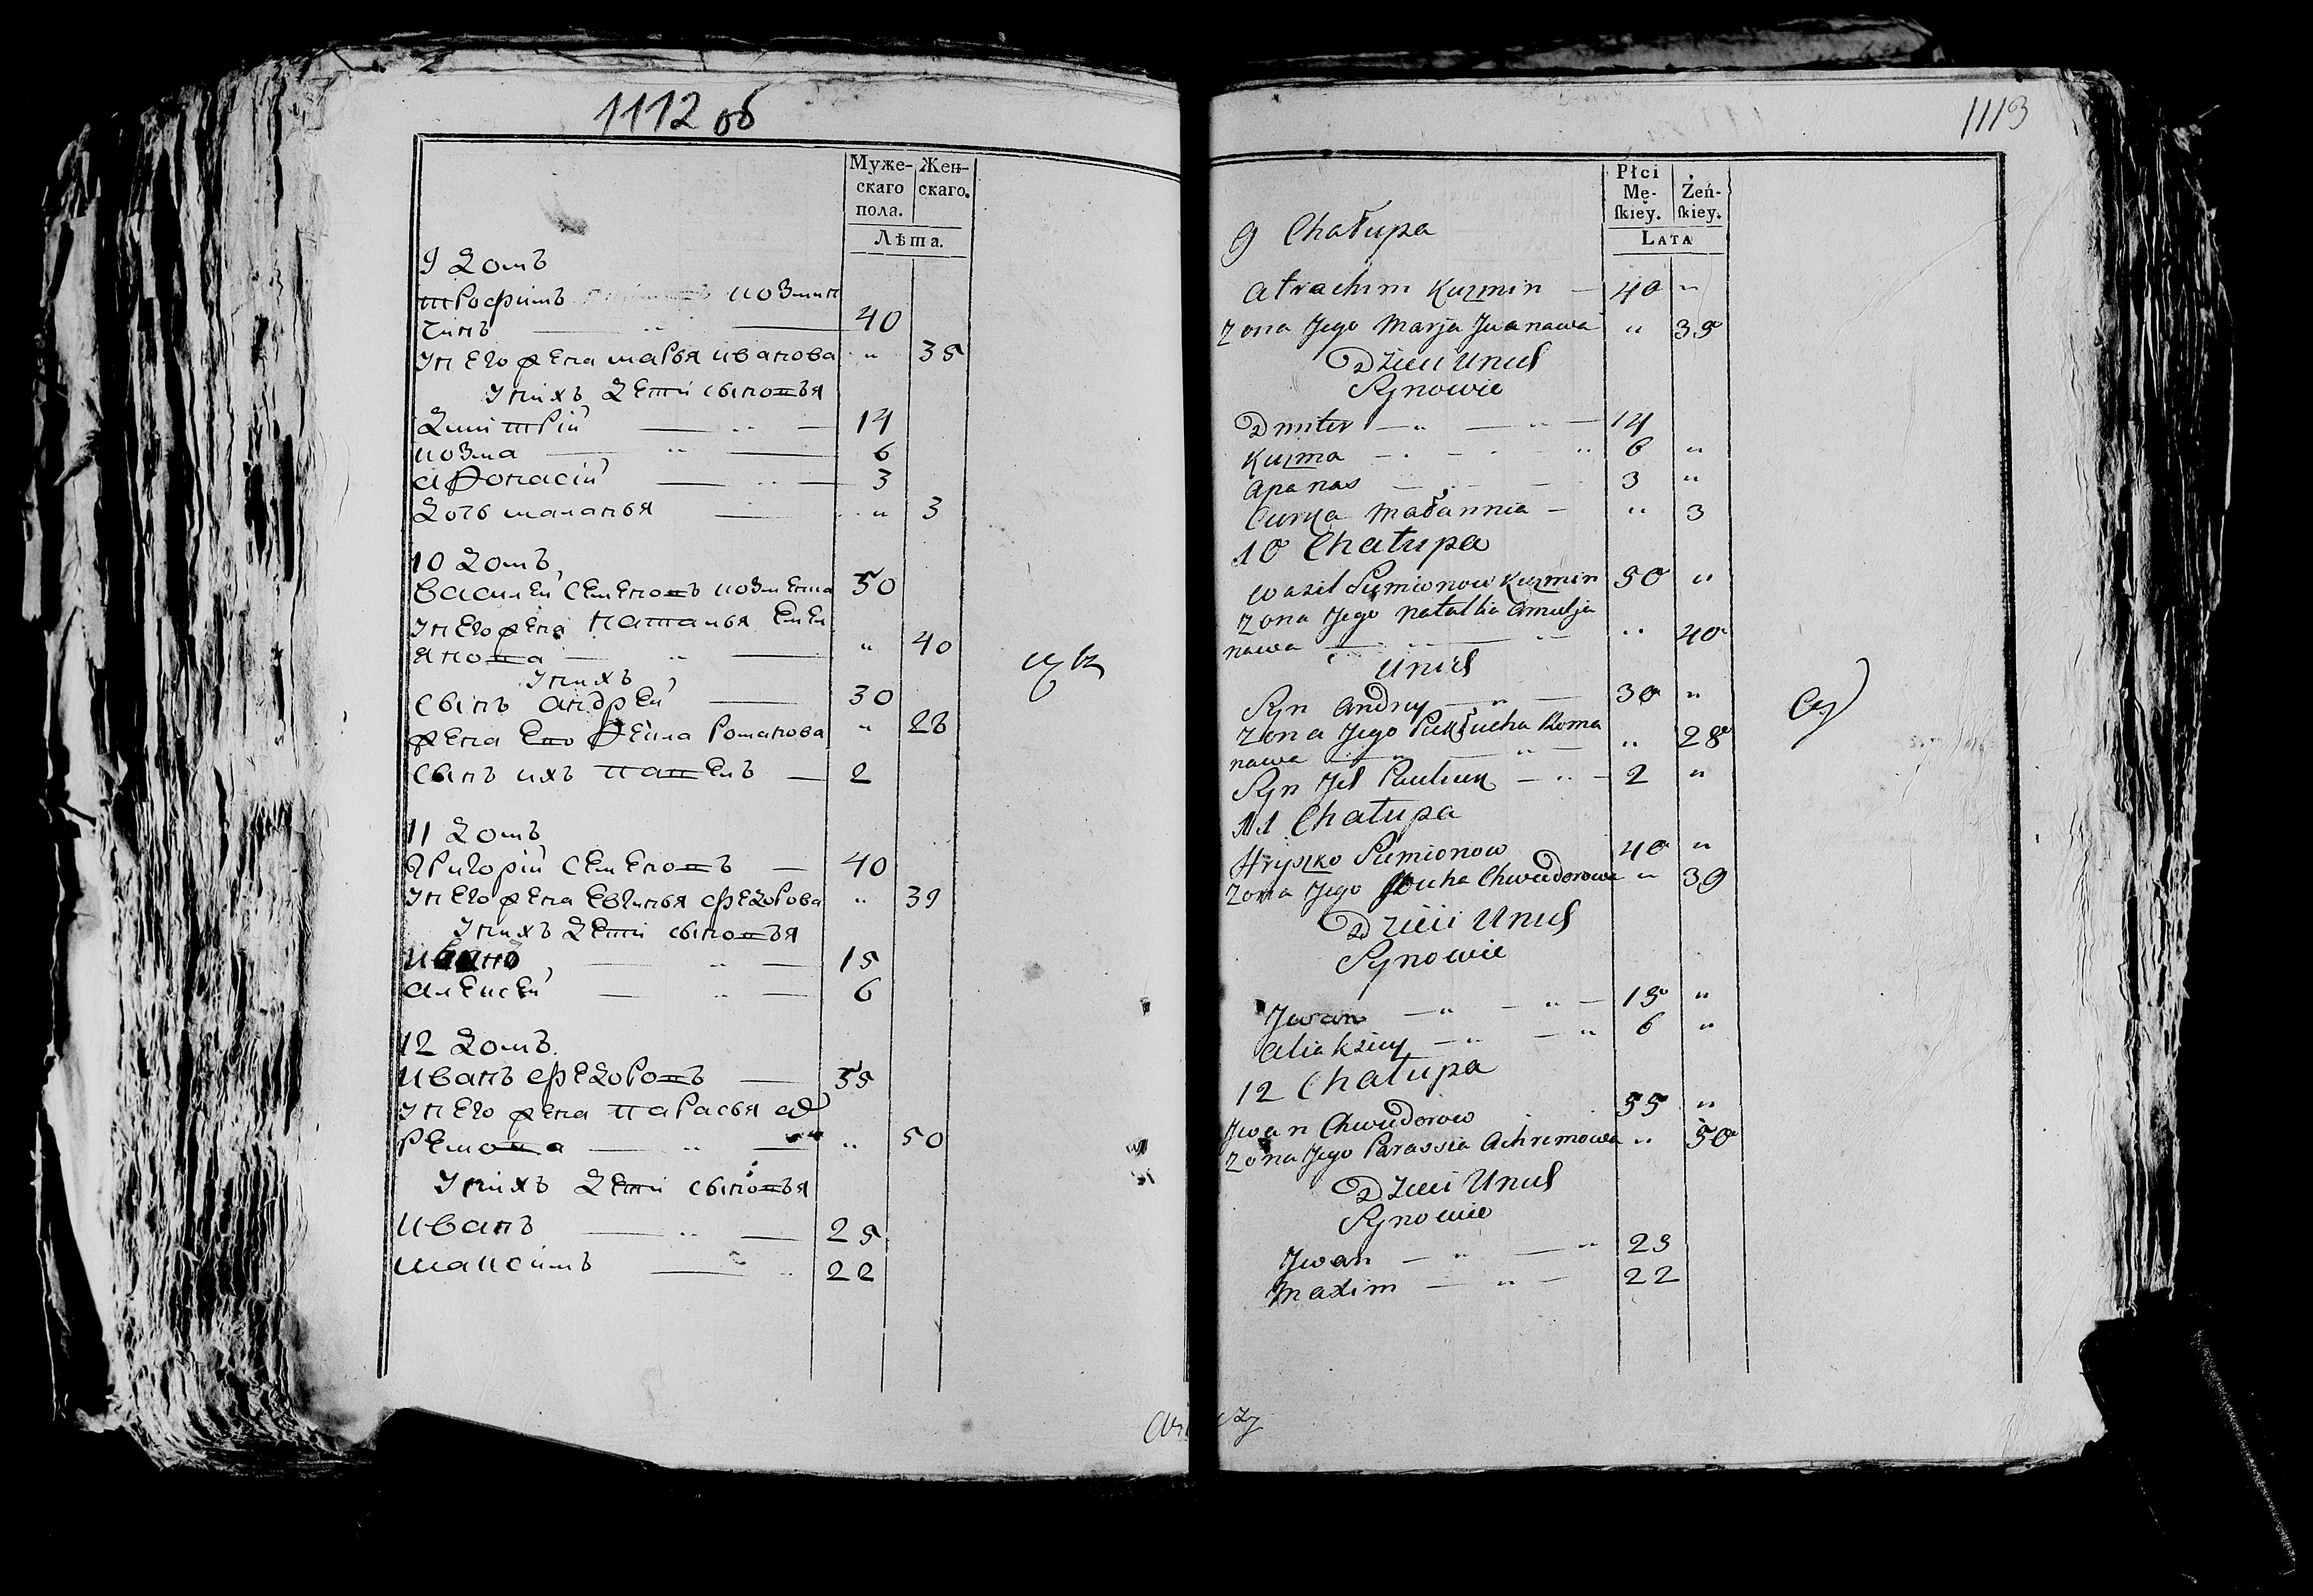 1112 об
Муже-
скаго
пола.
Жен-
скаго.
Лѣта.
9 Домъ
трофимъ козмин
Чинъ — 40
У него жена марья иванова " 35
У нихъ дети сыновья
Дмитрий — 14
козма — 6
афонасий — 3
Дочь маланья — " 3
10 Домъ
Василей Семеновъ козмина 50
У него жена наталья Емел
янова — " 40
У нихъ
Сынъ андрей — 30
жена Его фекла романова " 28
Сынъ ихъ павелъ — 2
11 Домъ
григорий Семеновъ — 40
У него жена Евгинья федорова " 39
У нихъ дети сыновья
иванъ — 15
алексей — 6
12 Домъ
иванъ федоровъ — 55
У него жена парасья аф
ремова — " 50
У нихъ дети сыновья
иванъ — 25
максимъ — 22
1113
Płci
Mę-
skiey.
Żeń-
skiey.
LATA
9 Chałupa
Atrachim Kuzmin — 40 "
Zona Jego Marja Jwanawa " 35
Dzieci Unich
Synowie
Dmiter — " — " — 14
Kuzma — 6 "
Apanas — 3 "
Curka Małannia — " 3
10 Chałupa
Wasil Siemionow Kuzmin 50 "
Zona Jego Natallia Amielja
nawa — " 40
Unich
Syn Andrey — " — 30 "
Zona Jego Piekłucha Roma
nawa — " 28
Syn Jch Pauluk — " — 2 "
11 Chałupa
Hryszko Siemionow 40 "
Zona Jego Jouha Chwiedorowa " 39
Dzieci Unich
Synowie
Jwan — " — " — 15 "
Aliaksiey — " — " 6 "
12 Chałupa
Jwan Chwiedorow 55 "
Zona Jego Parassia Achremowa " 50
Dzieci Unich
Synowie
Jwan — " — " 25
Maxim — " — 22